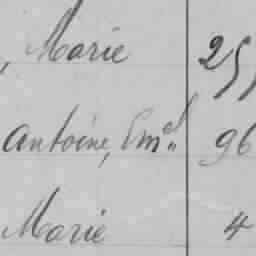 , Marie 25
Antoine, Em.el 96
Marie 4